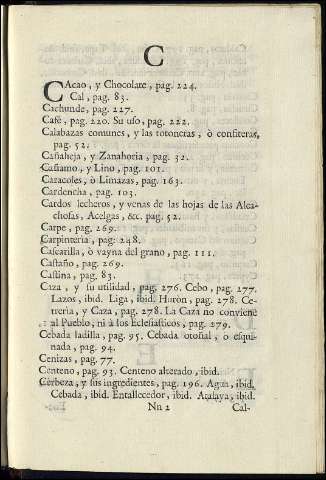 C
CAcao, y Chocolate, pag. 224.
Cal, pag. 83.
Cachunde, pag. 227.
Cafè, pag. 220. Su uso, pag. 222.
Calabazas comunes, y las totoneras, ò confiteras,
pag. 52.
Cañaheja, y Zanahoria, pag. 32.
Cañamo, y Lino, pag. 101.
Caracoles, ò Limazas, pag. 163.
Cardencha, pag. 103.
Cardos lecheros, y venas de las hojas de las Alca-
chofas, Acelgas, &c. pag. 52.
Carpe, pag. 269.
Carpinteria, pag. 248.
Cascarilla, ò vayna del grano, pag. 111.
Castaño, pag. 269.
Castina, pag. 83.
Caza, y su utilidad, pag. 276. Cebo, pag. 277.
Lazos, ibid. Liga, ibid. Huròn, pag. 278. Ce-
treria, y Caza, pag. 278. La Caza no conviene
al Pueblo, ni à los Eclesiasticos, pag. 279.
Cebada ladilla, pag. 95. Cebada otoñal, ò esqui-
nada, pag. 94.
Cenizas, pag. 77.
Centeno, pag. 93. Centeno alterado, ibid.
Cerbeza, y sus ingredientes, pag. 196. Agua, ibid.
Cebada, ibid. Entallecedor, ibid. Atalaya, ibid.
Nn 2 Cal-